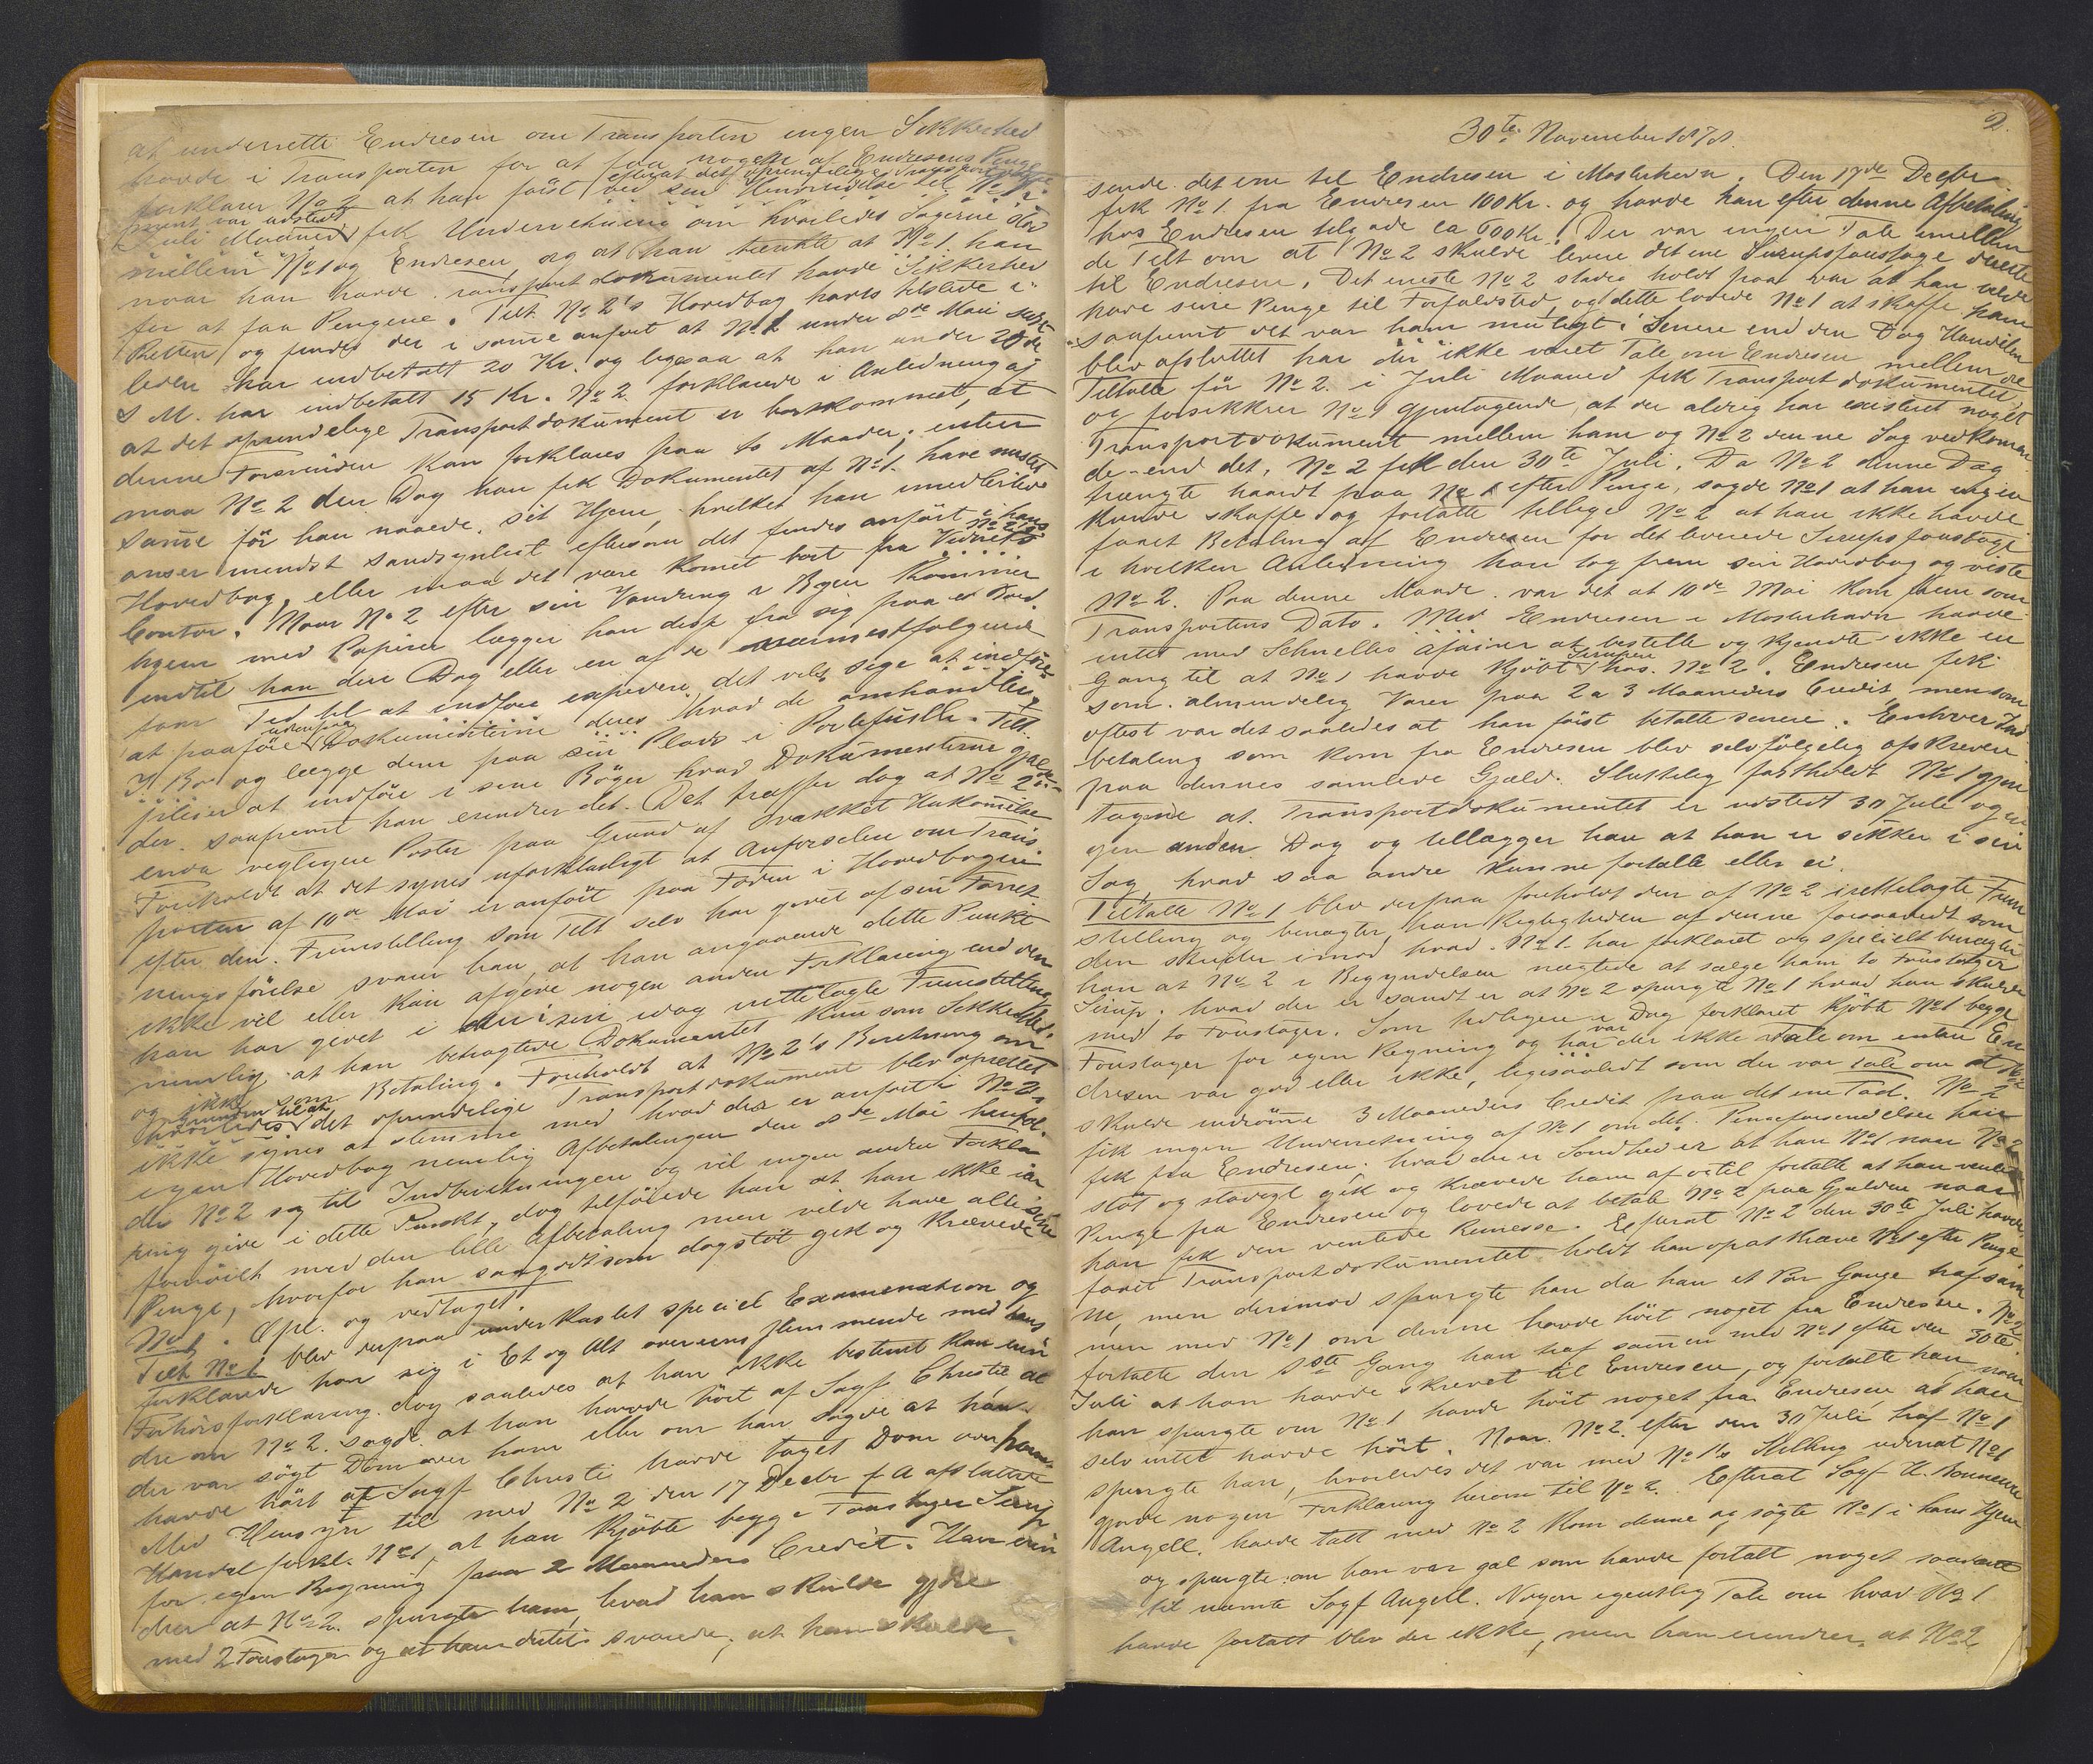 at underrette Endresen om Transporten ingen Sikkerhed
havde i Transporten for at faa noget af Endresens Penge
efterat det oprindelige Transportdoku
forklarer No 2 at han først ved sin Henvendelse til No 1 i
ment var udstedt
Juli Maaned fik Underretning om hvorledes Sagerne stod
mellem No 1 og Endresen og at han tænkte at No 1 han
naar han havde Transportdokumentet havde Sikkerhed
for at faa Pengene. Tilt. No 2's Hovedbog havts tilstede i
Retten og findes der i samme anført at No 1 under 8de Mai sidst
leden har indbetalt 20 Kr. og ligesaa at han under 28de
s M. har indbetalt 15 Kr. No 2 forklarede i Anledning af
at det oprindelige Transportdokument er bortkommet, at
denne Forsvinden kan forklares paa to Maader; enten
maa No 2 den Dag han fik Dokumentet af No 1 have mistet
samme før han naaede sit Hjem, hvilket han imidlertid
anser mindst sandsynligt eftersom det findes anført i hans
Hovedbog, eller maa det være komet bort fra No 2's
Contor. Naar No 2 efter sin Vandring i Byen kommer
hjem med Papirer lægger han disse fra sig paa et Bord
indtil han den Dag eller en af de nærmestfølgende
faar Tid til at indføre expedere det vil sige at indføre
at paaføre udenpaa Dokumenterne deres hvad de omhandler,
og lægge dem paa sin Plads i Portefuille. Tilt.
pleier at indføre i sine Bøger hvad Dokumenterne gjæl-
der saafremt han erindrer det. Det træffer dog at No 2
enda vegligere Poster paa Grund af svækket Hukomelse
Foreholdt at det synes uforklarligt at Anførselen om Trans-
porten af 10de Mai er anført paa Foden i Hovedbogen
efter den Fremstilling som Tilt selv har givet af sin Forret-
ningsførelse svarer han, at han angaaende dette Punkt
ikke vil eller kan afgive nogen anden Forklaring end den
han har givet i sin idag irettelagte Fremstilling
nemlig at han betragtede Dokumentet kun som Sikkerhed
og ikke som Betaling. Foreholdt at No 2's Beretning om
hvorledes det oprindelige Transportdokument blev oprettet
ikke synes at stemme med hvad der er anført i No 2's
egen Hovedbog nemlig Afbetalingen den 8de Mai henhol-
dt No 2 sig til Indberetningen og vil ingen anden Forkla-
ring give i dette Punkt, dog tilføiede han at han ikke var
fornøiet med den lille Afbetaling men vilde have alle sine
Penge, hvorfor han saagodtsom dagstøt gik og krævede
No 1. Opl. og vedtaget.
Tilt No 1 blev derpaa underkastet speciel Examination og
forklarede han sig i Et og Alt overensstemmende med hans
Forhørsforklaring dog saaledes at han ikke bestemt kan erin
dre om No 2 sagde at han havde hørt af Sagf. Christie at
der var søgt Dom over ham eller om han sagde at han
havde hørt at Sagf Christie havde taget Dom over ham
Med Hensyn til med No 2 den 17 Decbr f A afsluttede
Handel forkl. No 1, at han kjøbte begge Fonstager Sirup
for egen Regning paa 2 Maaneders Credit. Han erin
drer at No 2 spurgte ham, hvad han skulde gjøre
med 2 Fonstager og at han dertil svarede, at han skulde
2.
30te November 1878.
sende det ene til Endresen i Mosterhavn. Den 17de Decbr
fik No 1 fra Endresen 100 Kr. og havde han efter denne Afbetaling
hos Endresen tilgode ca 600 Kr. Der var ingen Tale imellem
de Tilt om at No 2 skulde levere det ene Sirupsfonstage direkte
til Endresen. Det eneste No 2 stadig holdt paa var at han vilde
have sine Penge til Forfaldstid, og dette lovede No 1 at skaffe ham
saafremt det var ham muligt. Senere end den Dag Handelen
blev afsluttet har der ikke været Tale om Endresen mellem de
Tiltalte før No 2 i Juli Maaned fik Transportdokumentet,
og forsikkrer No 1 gjentagende, at der aldrig har existeret noget
Transportdokument mellem ham og No 2 denne Sag vedkomen
de end det, No 2 fik den 30te Juli. Da No 2 denne Dag
trængte haardt paa No 1 efter Penge, sagde No 1 at han ingen
kunde skaffe og fortalte tillige No 2 at han ikke havde
faaet Betaling af Endresen for det leverede Sirupsfonstage
i hvilken Anledning han tog frem sin Hovedbog og viste
No 2. Paa denne Maade var det at 10de Mai kom frem som
Transportens Dato. Med Endresen i Mosterhavn havde
intet med Schnelles Afairer at bestille og kjendte ikke en
Gang til at No 1 havde kjøbt Sirupen hos No 2. Endresen fik
som almindelig Varer paa 2 a 3 Maaneders Credit, men som
oftest var det saaledes at han først betalte senere. Enhver Ind
betaling som kom fra Endresen blev selvfølgelig afskreven
paa dennes samlede Gjæld. Sluttelig fastholdt No 1 gjen
tagende at Transportdokumentet er udstedt 30 Juli og in
gen anden Dag og tillægger han at han er sikker i sin
Sag, hvad saa andre kunne fortælle eller ei.
Tiltalte No 1 blev derpaa foreholdt den af No 2 irettelagte Frem
stilling og benægter han Rigtigheden af denne forsaavidt som
den strider imod hvad No 1 har forklaret og specielt benægter
han at No 2 i Begyndelsen nægtede at sælge ham to Fonstager
Sirup. hvad der er sandt er at No 2 spurgte No 1 hvad han skulde
med to Fonstager. Som tidligere i Dag forklaret kjøbte No 1 begge
Fonstager for egen Regning og var der ikke Tale om enten En
dresen var god eller ikke, ligesaalidt som der var Tale om at No 2
skulde indrømme 3 Maaneders Credit paa det ene Fad. No 2
fik ingen Underretning af No 1 om det. Pengeforsendelse han
fik fra Endresen. hvad der er Sandhed er at han No 1 naar No 2
støt og stadigt gik og krævede ham af og til fortalte at han ventede
Penge fra Endresen og lovede at betale No 2 paa Gjælden naar
han fik den ventede Remesse. Efterat No 2 den 30te Juli havde
faaet Transportdokumentet holdt han op at kræve No 1 efter Penge
ne, men derimod spurgte han da han et Par Gange traf sam
men med No 1 om denne havde hørt noget fra Endresen. No 1
fortalte den 1ste Gang han traf sammen med No 1 efter den 30te
Juli at han havde skrevet til Endresen, og fortalte han naar
han spurgte om No 1 havde hørt noget fra Endresen, at han
selv intet havde hørt. Naar No 2 efter den 30 Juli traf No 1
spurgte han, hvorledes det var med No 1's Stilling uden at No 1
gjorde nogen Forklaring herom til No 2. Efterat Sagf U. Sonneure
Angell havde talt med No 2 kom denne og søgte No 1 i hans Hjem
og spurgte om han var gal som havde fortalt noget saadant
til nævnte Sagf Angell. Nogen egentlig Tale om hvad No 1
havde fortalt blev der ikke, men han erindrer at No 2